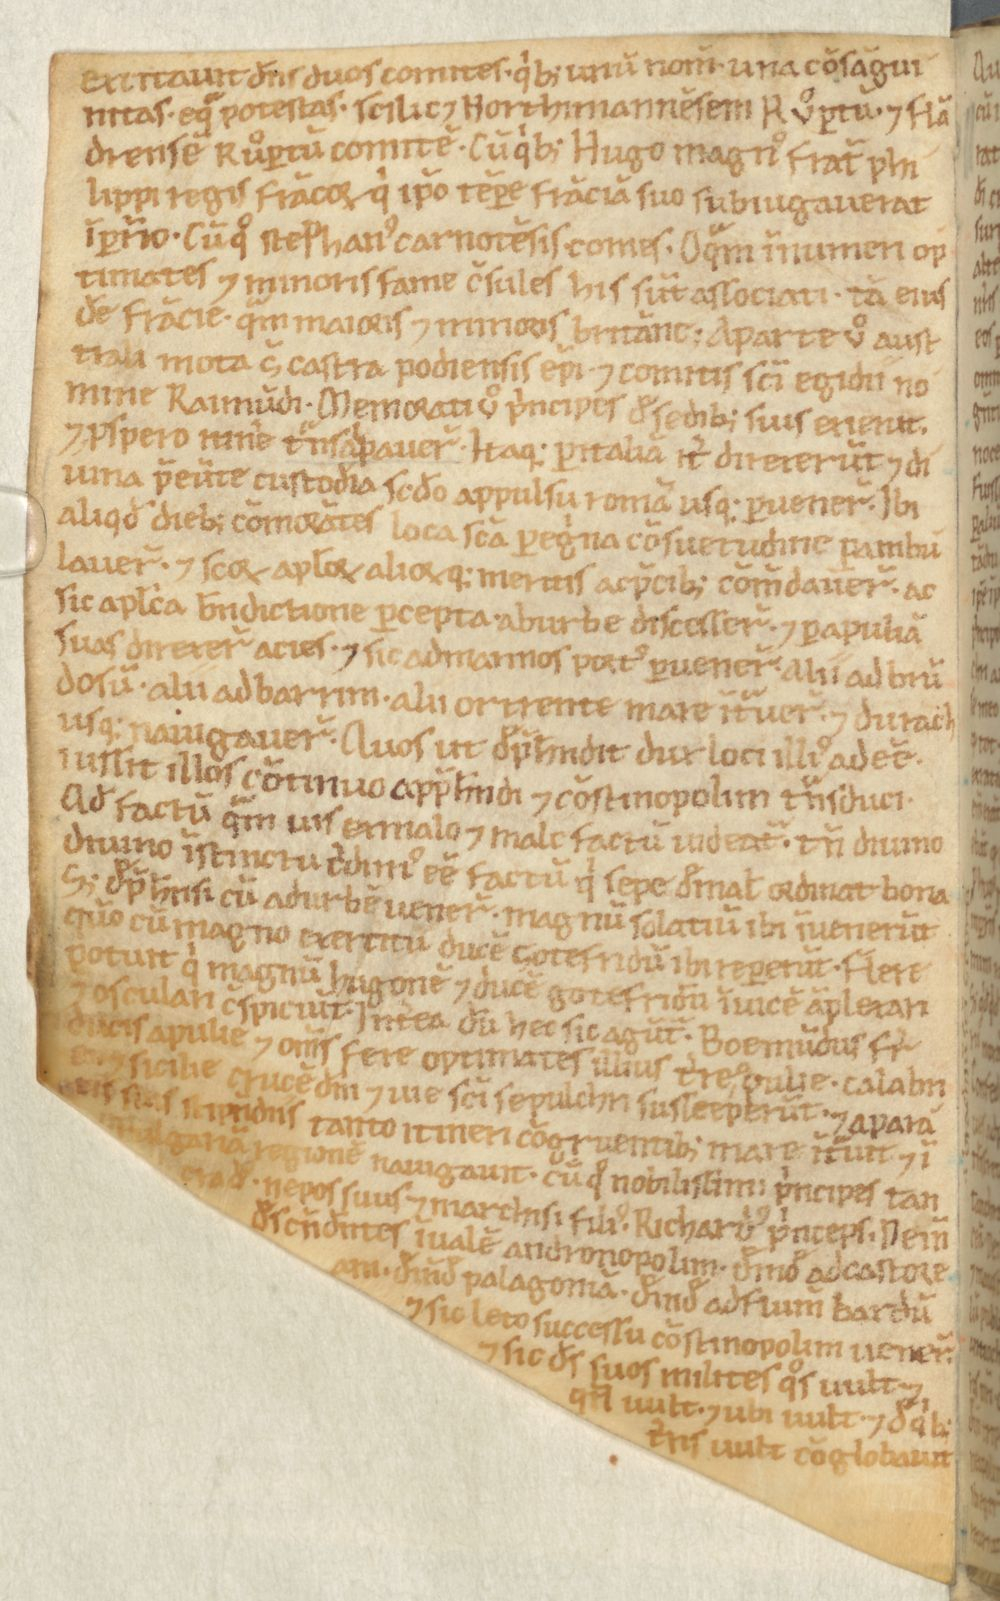 excitauit dn̄s duos comites · qͥb; unū nom̄ · una cōsāgui
nitas · eqᷓ potestas · scilic; Northmannēsem Rͦptū · ⁊ flā
drensē Ruͦptū comitē · Cū qͥb; Hugo magnꝰ frat̄ phi
lippi regis francoꝝ qͥ ip̄o tēpe franciā suo subiugauerat
īp̄rio · Cū qͦ stephanꝰ carnotēsis comes · Oqᷓm īnumeri op
timates ⁊ minoris fame c̄sules his sūt associati · tā eius
dē frācie · qᷓm maioris ⁊ minoris britānie · A parte ꝟ aust
rali mota s̄ castra podiensis ep̄i · ⁊ comitis sc̄i egidii no
mine Raimūdi · Memorati ꝟ pͥncipes d̄ sedib; suis exierūt ·
⁊ ꝓspero tͣnsapauer̄ · Itaq; ꝑ italiā it̄ direxerūt ⁊ di
uina p̄eūte custodia sc̄do appulsu romā usq; ꝑuener̄ · Ibi
aliqd̄ dieb; cōmorātes loca sc̄a ꝑegͥna cōsuetudine ꝑambu
lauer̄ · ⁊ sc̄oꝝ apl̄oꝝ alioꝝq; meritis ac p̄cib; cōm̄dauer̄ · ac
sic apl̄ica bn̄dictione ꝑcepta · ab urbe discesser̄ · ⁊ ꝑ apuliā
suas direxer̄ acies · ⁊ sic ad marinos portꝰ ꝑuener̄ · Alii ad brū
dosiū · alii ad barrim · alii ortrente mare it̄uer̄ · ⁊ durach
usq; nauigauer̄ · Quos ut dp̄hendit dux loci illiꝰ adeē ·
iussit illos cōtinuo app̄hndi ⁊ cōstinopolim tͣnsduci ·
Ad factū qᷓm uis ex malo ⁊ male factū uideat̄ · tn̄ diuino
diuino īstinctu c̄dimꝰ eē factū qͥ sepe d̄ mal̄ ordinat bona
S; dp̄hnsi cū ad urbē uener̄ · magnū solatiū ibi īuenerūt
quo cū magno exercitu ducē gotefridū ibi repperūt · flere
potuit qͥ magnū hugonē ⁊ ducē gotefridū īuicē āplexari
⁊ osculari c̄spiciūt · Intͣea dū hec sic agūt̄ · Boemūdus fr̄
ducis apulie ⁊ om̄s fere optimates illius tͣre apulie · calabri
e ⁊ sicilie crucē dn̄i ⁊ uie sc̄i sepulchri susceperūt · ⁊ apara
tis suis stipēdiis tanto itineri cōgruentib; mare īt̄ūt ⁊ ī
bulgariā regionē nauigaūt · Cū qͦ nobilissimi pͥncipes tan
crad̄ · nepos suus ⁊ marchisi filiꝰ · Richardꝰ pͥnceps · Dein̄
d̄scn̄dētes ī ualē andronopolim · d̄ind̄ ad castore
am · d̄ind̄ palagoniā · d̄ind̄ ad flum̄ bardū
⁊ sic leto successu cōstinopolim uener̄ ·
⁊ sic dꝰs suos milites qͦs uult ⁊
qn̄ uult · ⁊ ubi uult · ⁊ d̄ qͥb;
t̄ris uult cōglobauit